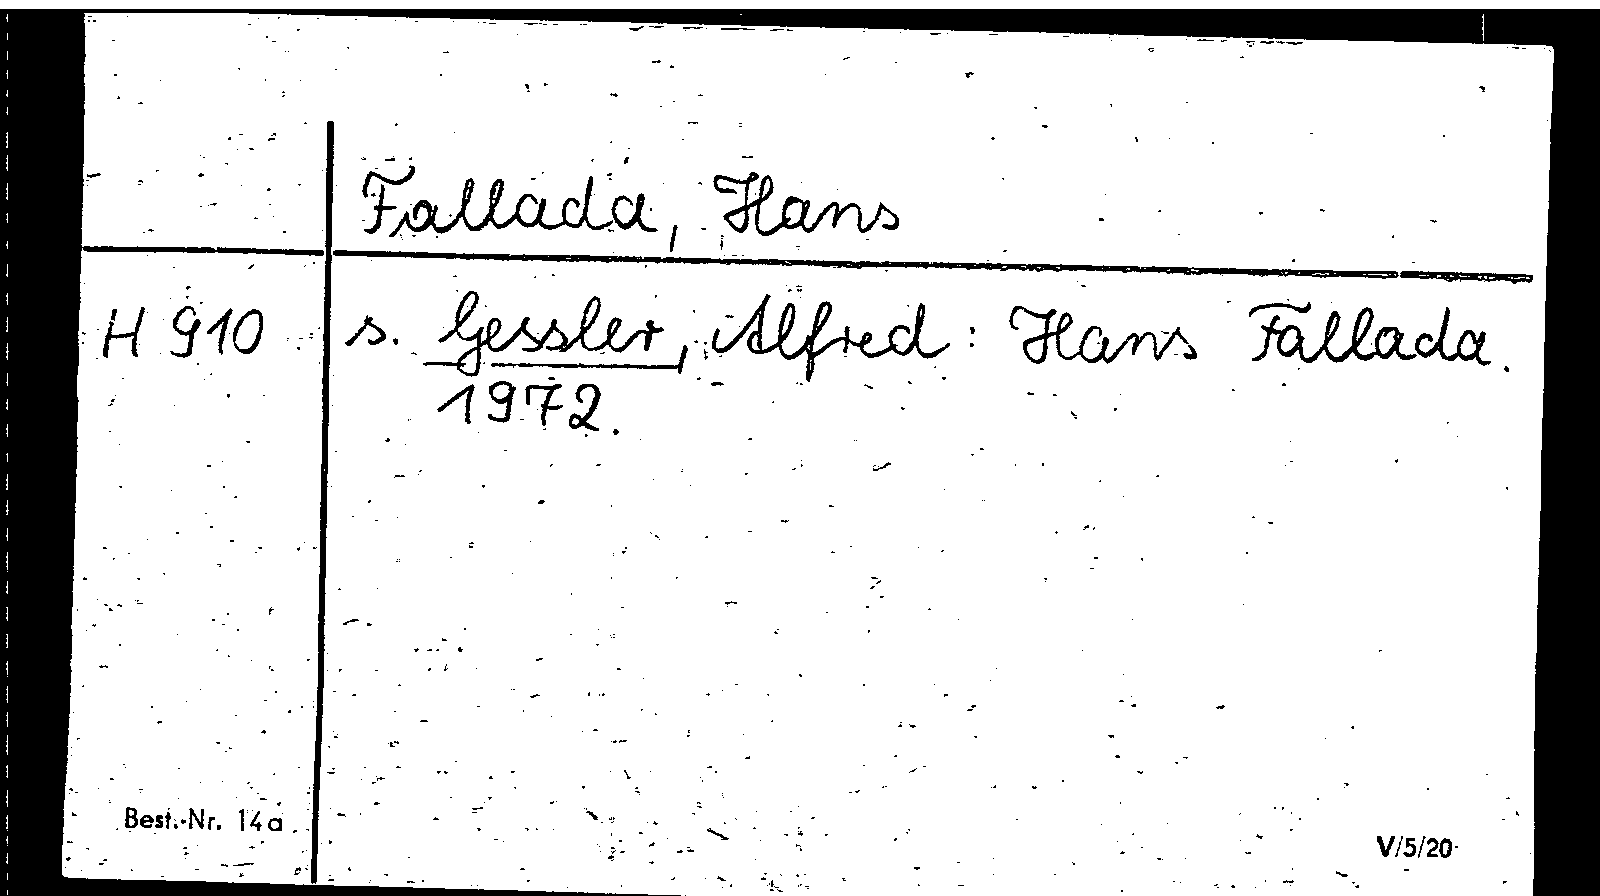 Fallada, Hans
H 910 s. Gessler, Alfred: Hans Fallada.
1972.
Best.-Nr. 14a
V/5/20